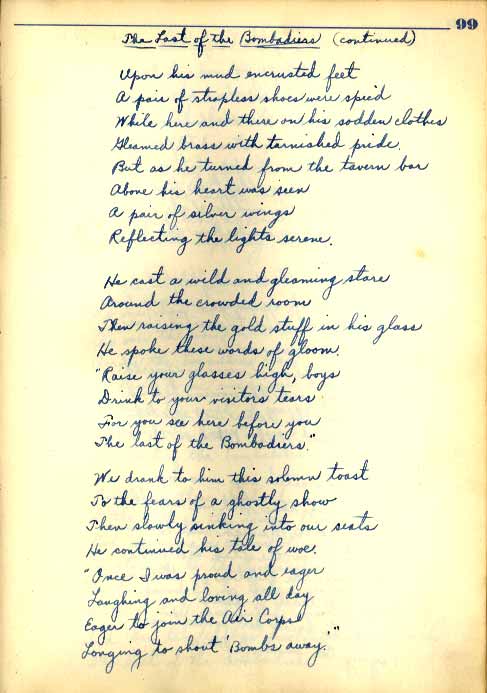 99
The Last of the Bombadiers (continued)
Upon his mud encrusted feet
A pair of strapless shoes were spied
While here and there on his sodden clothes
Gleamed brass with tarnished pride.
But as he turned from the tavern bar
Above his heart was seen
A pair of silver wings
Reflecting the lights serene.
He cast a wild and gleaming stare
Around the crowded room
Then raising the gold stuff in his glass
He spoke these words of gloom.
"Raise your glasses high, boys
Drink to your visitor's tears
For you see here before you
The last of the Bombadiers."
We drank to him this solemn toast
To the fears of a ghostly show
Then slowly sinking into our seats
He continued his tale of woe.
"Once I was proud and eager
Laughing and loving all day
Eager to join the Air Corps
Longing to shout 'Bombs away.'"